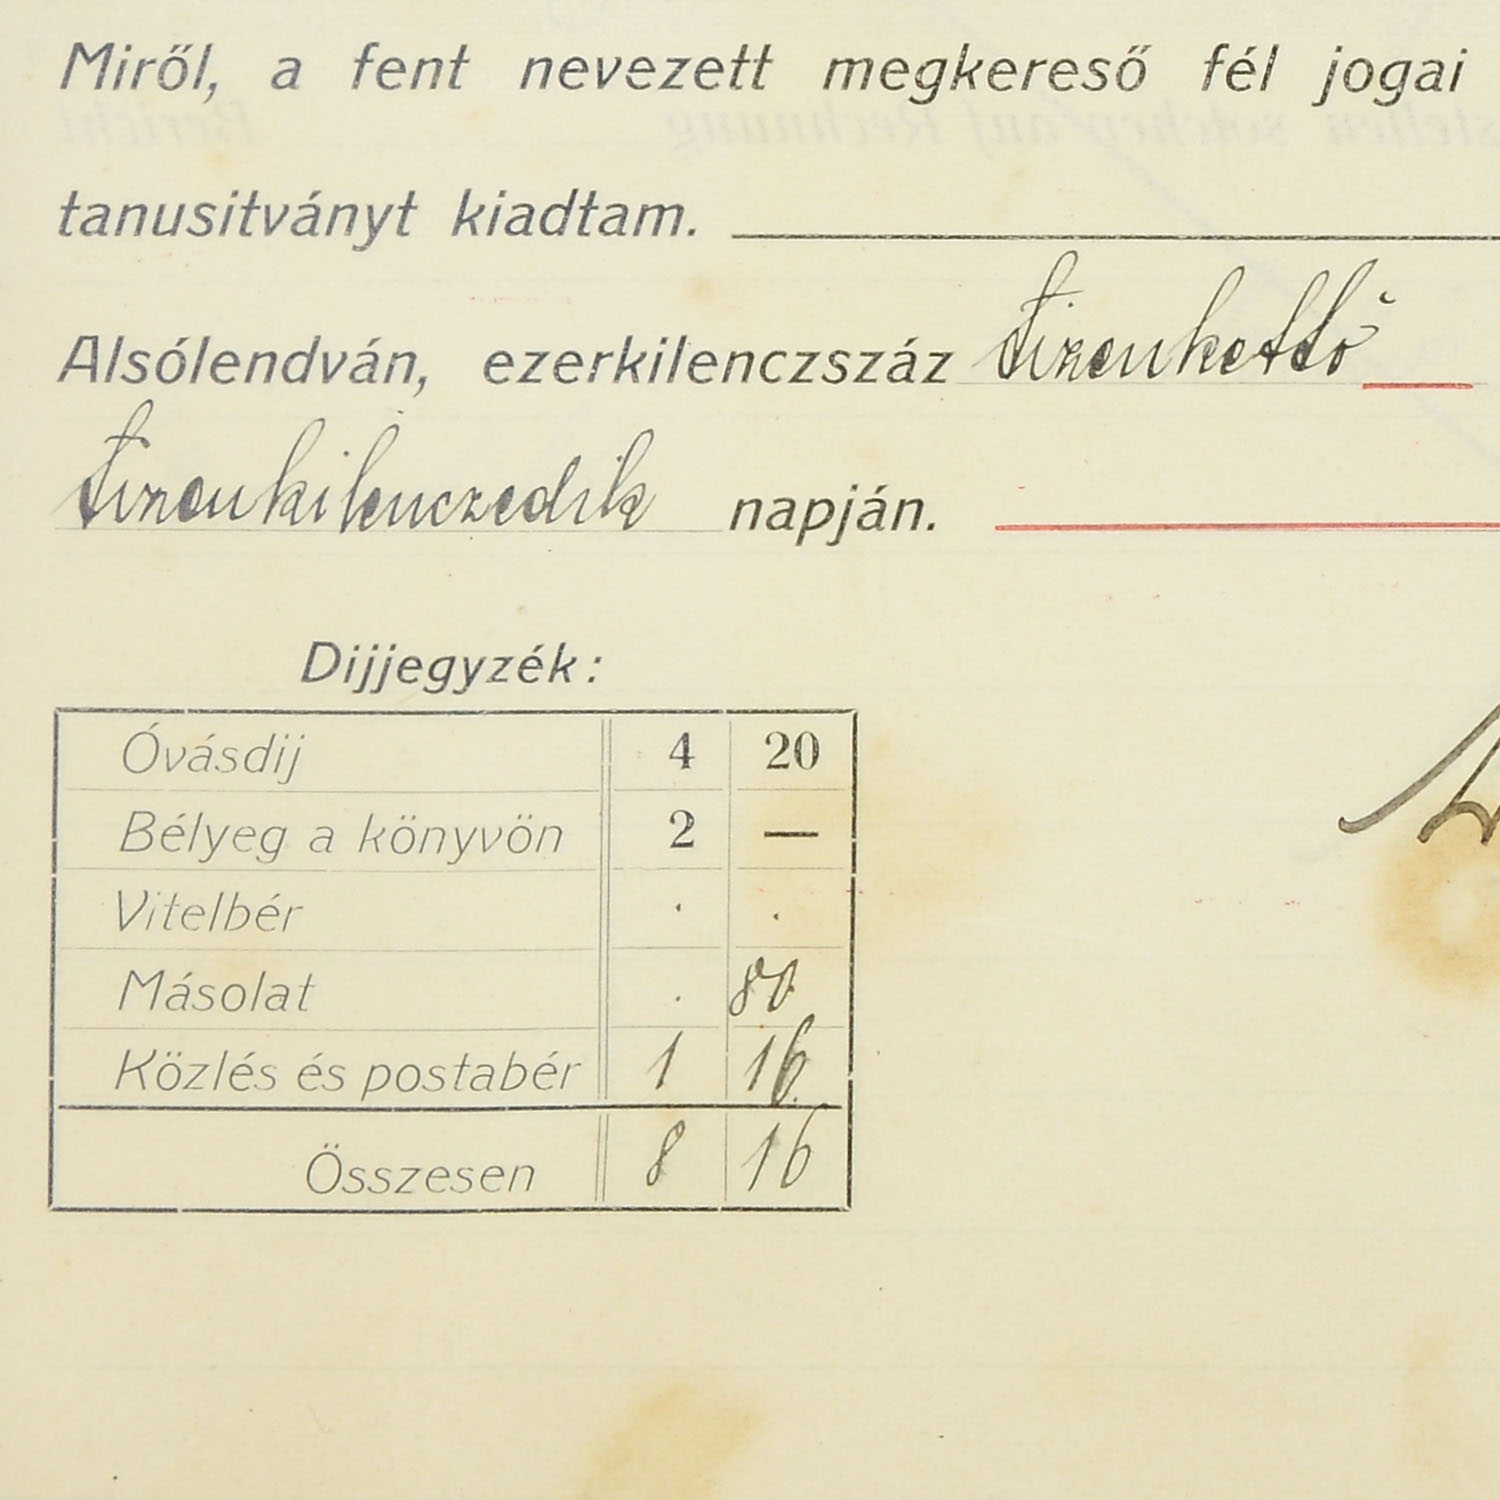 Miről, a fent nevezett megkereső fél jogai
tanusitványt kiadtam.
Alsólendván, ezerkilenczszáz tizenkettő
tizenkilenczedik napján.
Dijjegyzék:
Óvásdij 4 20
Bélyeg a könyvön 2 —
Vitelbér . .
Másolat . 80
Közlés és postabér 1 16
Összesen 8 16